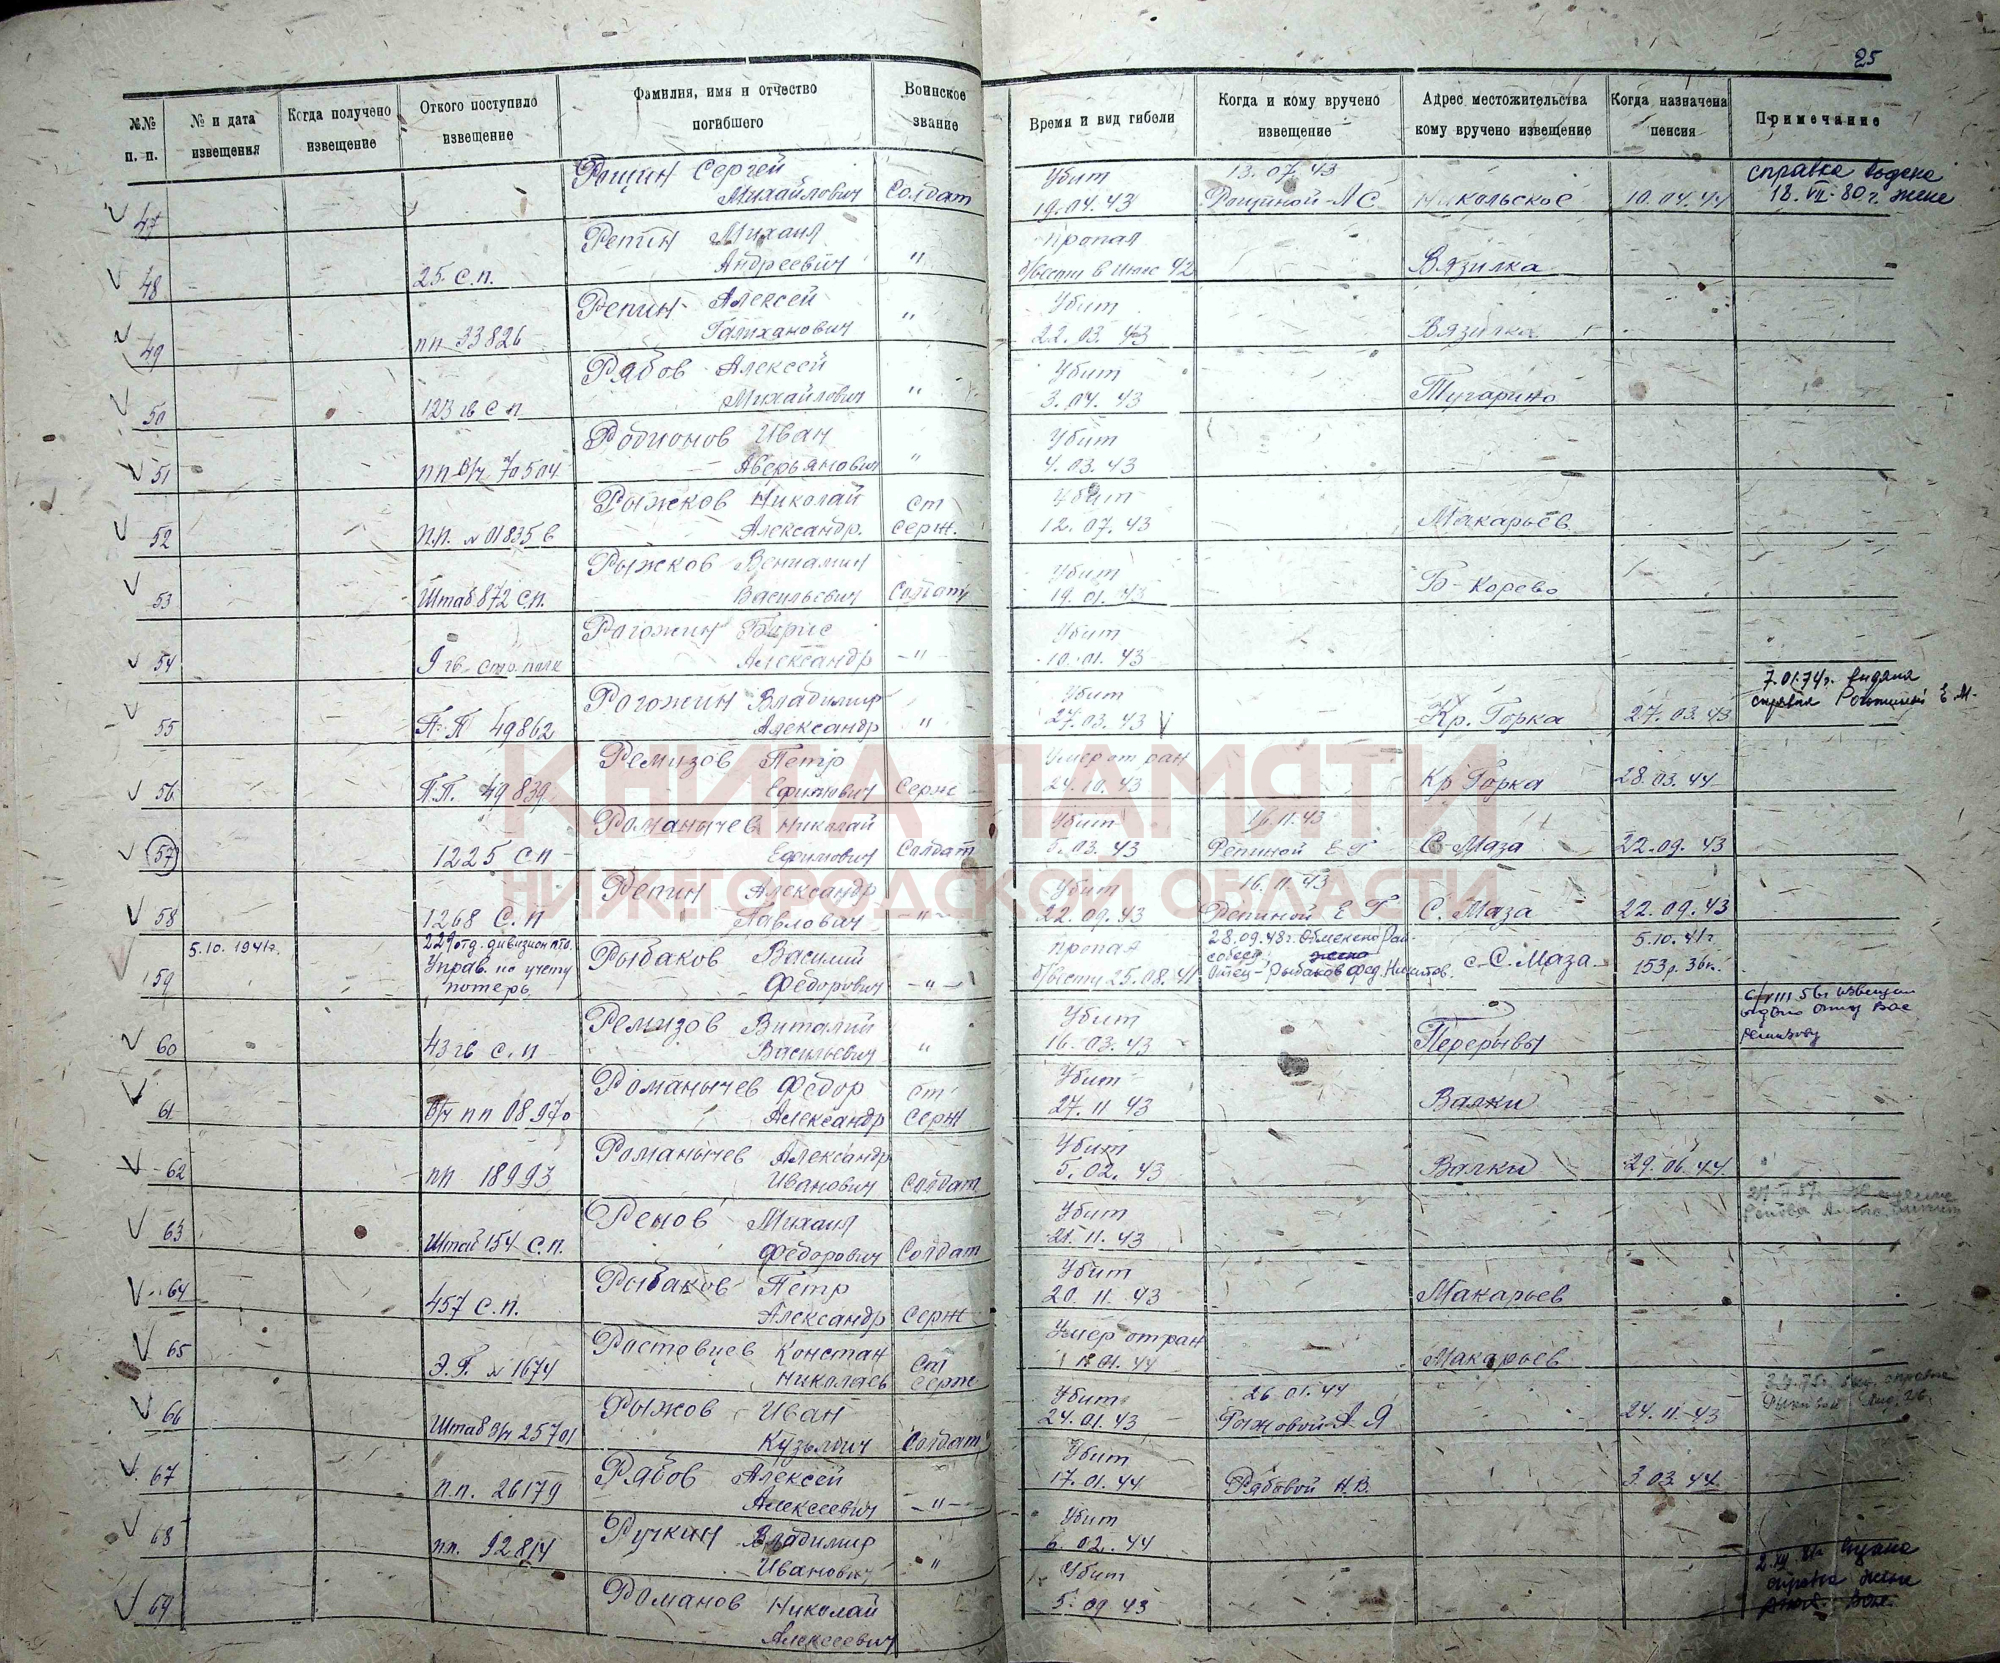 25
№№ п. п. № и дата извещения Когда получено извещение Откого поступило извещение Фамилия, имя и отчество погибшего Воинское звание Время и вид гибели Когда и кому вручено извещение Адрес местожительства кому вручено извещение Когда назначена пенсия Примечание
Рощин Сергей Убит 13.07.43 справка
47 Михайлович Солдат 19.04.43 Рощиной Никольское 10.04.44 18.VII-80г. жене
Репин Михаил Пропал
48 25 с.п. Андреевич " б/вести в 42 Вязилка
Репин Алексей Убит
49 пп 33826 " 22.03.43 Вязилка
Рябов Алексей Убит
50 123 гв с п Михайлович " 3.04.43 Тугарино
Родионов Иван Убит
51 пп в/ч 70504 Аверьянович " 4.03.43
Рыжков Николай ст Убит
52 п.п. № 01835 в Александр. серж. 12.07.43 Макарьев
Рыжков Вениамин Убит
53 Штаб 872 с.п. Васильевич Солдат 19.01.43 Б-Корево
Рогожин Борис Убит
54 9 гв. стр. полк Александр -"- 10.01.43
Рогожин Владимир Убит 7.01.74г. выдана
55 П.П 49862 Александр " 27.03.43 Кр. Горка 27.03.43 справка Е М.
Ремизов Петр Умер от ран
56 П.П. 49839 Ефимович Серж 24.10.43 Кр Горка 28.03.44
Романычев Николай Убит 16.11.43
57 1225 сп Ефимович Солдат 5.03.43 Репиной Е Г С-Маза 22.09.43
Репин Александр Убит 16.11.43
58 1268 с.п Павлович -"- 22.09.43 Репиной Е Г С. Маза 22.09.43
5.10.1941г. 229 отд. дивизион пто. Рыбаков Василий пропал 28.09.48г. 5.10.41г
59 Управ. по учету потерь Федорович -"- б/вести 25.08.41 Отец-Рыбаков Фед. Никитов. с. С. Маза 153р. 36к.
Ремизов Виталий Убит
60 43 гв с.п Васильевич " 16.03.43 Перерывы
Романычев Федор ст Убит
61 в/ч пп 08970 Александр серж 27.11.43 Валки
Романычев Александр Убит
62 пп 18993 Иванович Солдат 5.02.43 Валки 29.06.44
Ренов Михаил Убит
63 Штаб 154 с.п. Федорович Солдат 21.11.43
Рыбаков Петр Убит
64 457 с.п. Александр серж 20.11.43 Макарьев
Ростовцев Констан Умер от ран
65 Э.Г. № 1674 Николаев Ст серж 01.44 Макарьев
Рыжов Иван Убит 26.01.44
66 Штаб в/ч 25701 Кузьмич Солдат 24.01.43 Рыжовой А Я 24.11.43
Рябов Алексей Убит
67 п.п. 26179 Алексеевич -"- 17.01.44 Рябовой Н.В. 3.03.44
Ручкин Владимир Убит
68 пп. 92814 Иванович " 6.02.44
Романов Николай Убит
69 Алексеевич 5.09.43 справка жене
КНИГА ПАМЯТИ
НИЖЕГОРОДСКОЙ ОБЛАСТИ